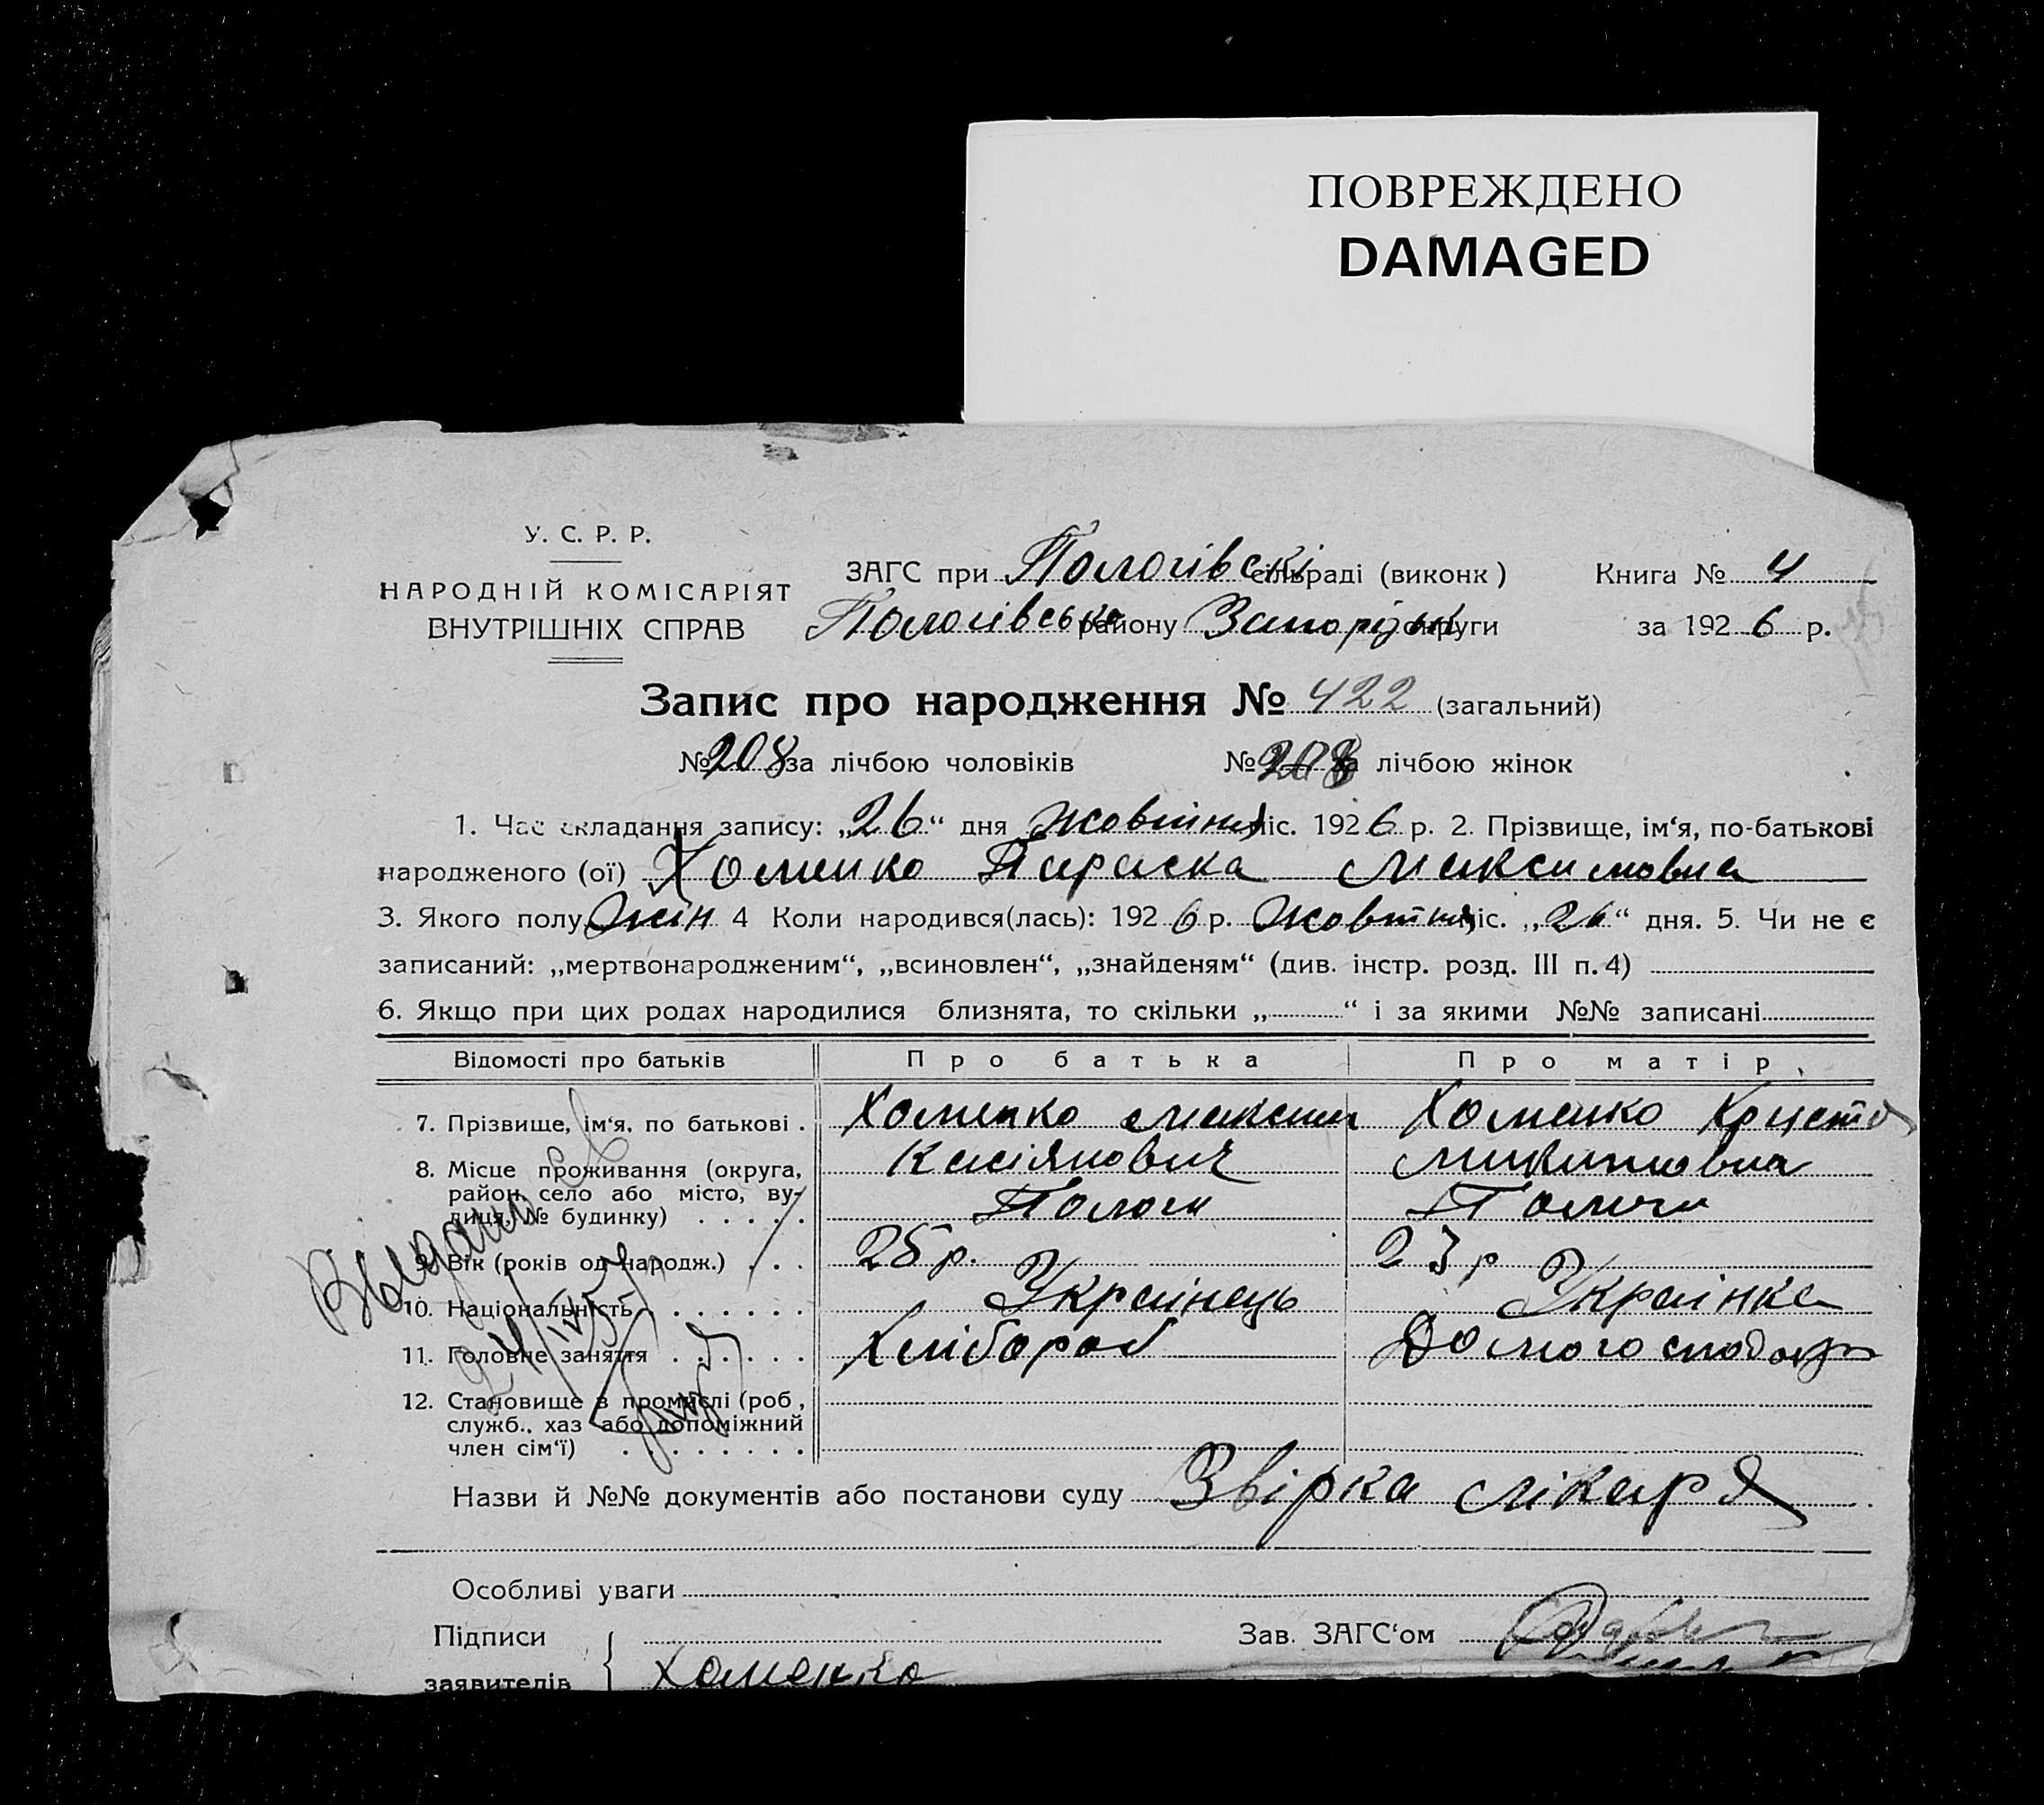 ПОВРЕЖДЕНО
DAMAGED
У. С. Р. Р.
НАРОДНІЙ КОМІСАРІЯТ
ВНУТРІШНІХ СПРАВ
ЗАГС при Пологівскі сільраді (виконк)
Книга № 4
Пологівсько району Запорізьк округи
за 1926 р.
Запис про народження № 422 (загальний)
№ 208 за лічбою чоловіків № 208 за лічбою жінок
1. Час складання запису: „26“ дня жовтня міс. 1926 р. 2. Прізвище, ім‘я, по-батькові
народженого (ої) Хоменко Параска Максимовна
3. Якого полу жін 4 Коли народився(лась): 1926 р. жовтня міс. „26“ дня. 5. Чи не є
записаний: „мертвонародженим“, „всиновлен“, „знайденям“ (див. інстр. розд. III п. 4)
6. Якщо при цих родах народилися близнята, то скільки „ “ і за якими №№ записані
Відомості про батьків Про батька Про матір
7. Прізвище, ім‘я, по батькові . Хоменко Максим Хоменко Христя
Касіянович Микитовна
8. Місце проживання (округа,
район, село або місто, ву-
лиця, № будинку) . . . . . Пологи Пологи
9. Вік (років од народж.) . . . 25 р. 23 р
10. Національність . . . . . . . Українець Українка
11. Головне заняття . . . . . . Хлібороб
12. Становище в промислі (роб.,
служб., хаз або допоміжний
член сім‘ї) . . . . . . . .
Выдано св
Назви й №№ документів або постанови суду Звірка лікаря
Особливі уваги
Підписи
Зав. ЗАГС‘ом
заявителів Хоменко